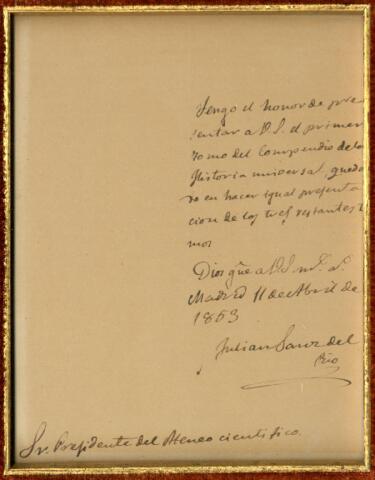 Tengo el honor de pre
sentar a V.S. el primer
tomo del Compendio de la
Historia universal, queda
ro en hacer igual presenta
cion de los tres restantes t
mos
Dios gue a V.S. m.s a.s
Madrid 11 de Abril de
1853
Julian Sanz del
Rio
Sr. Presidente del Ateneo cientifico.